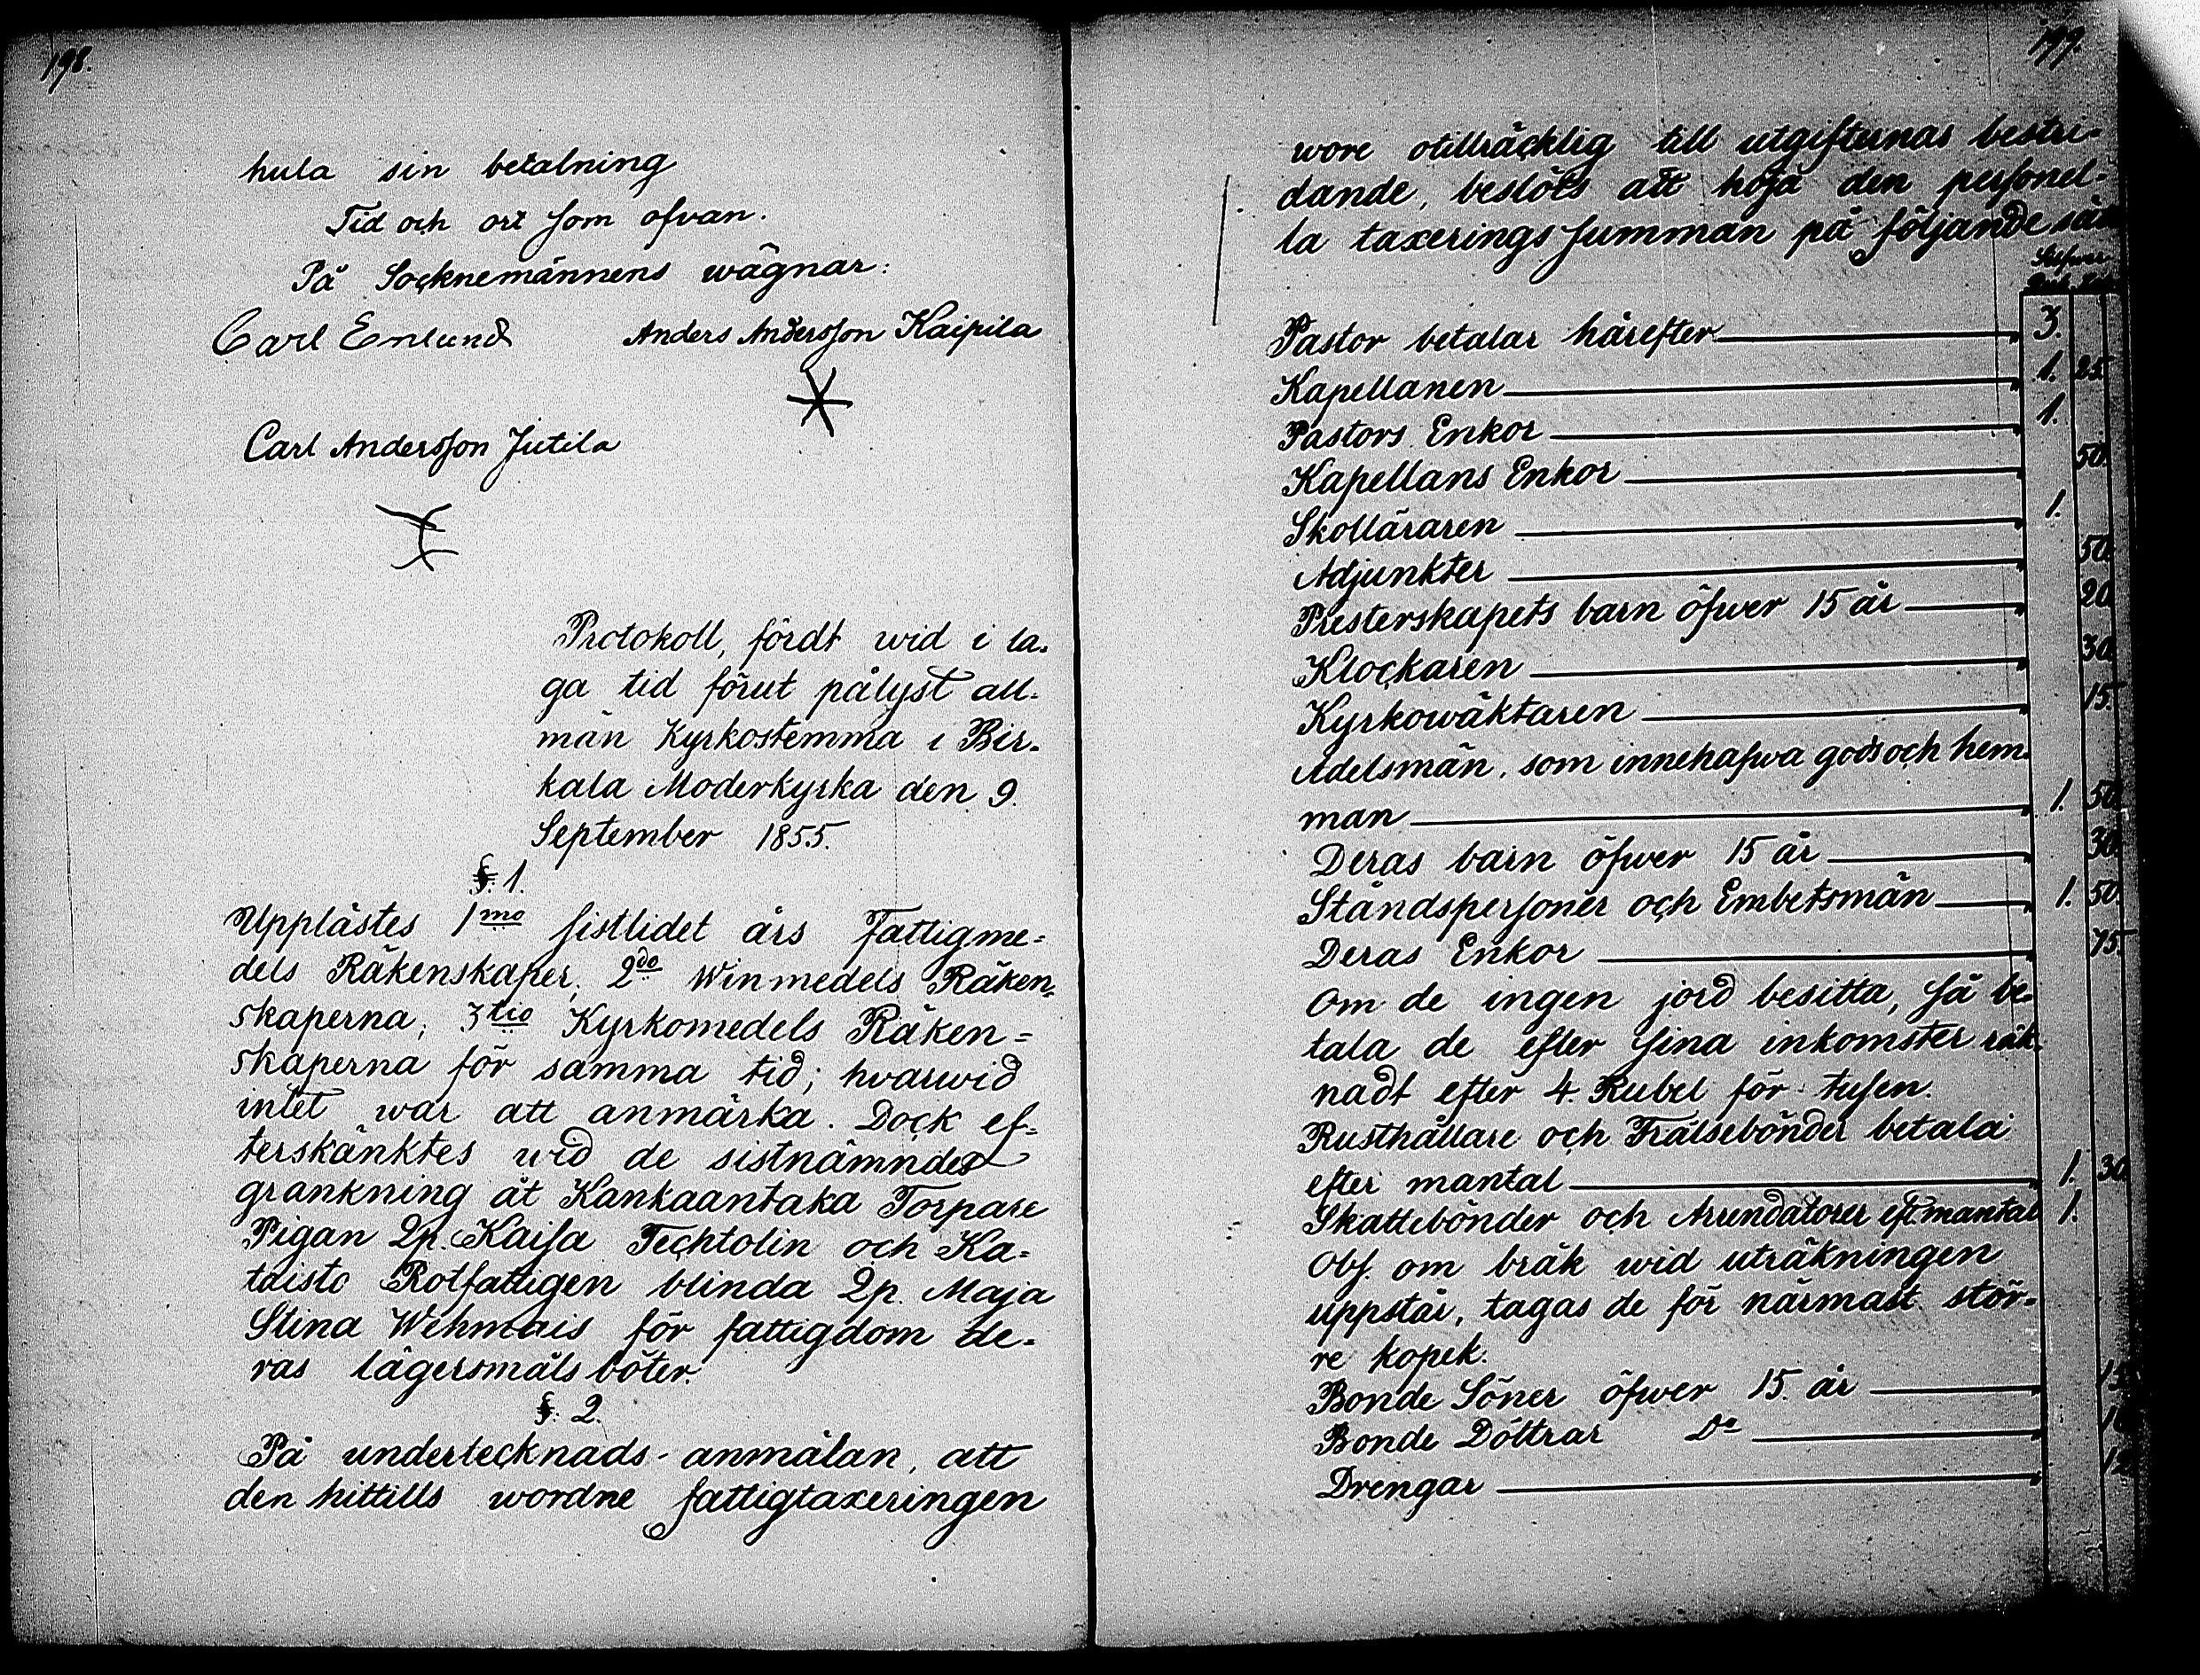 198.
hula sin betalning
Tid och ort som ofvan.
På Socknemännens wägnar:
Carl Enlund Anders Andersson Kaipila
Carl Andersson Jutila
Protokoll, fördt wid i la-
ga tid förut pålyst all-
män Kyrkostemma i Bir-
kala Moderkyrka den 9.
September 1855.
§. 1.
Upplästes 1mo sistlidet års Fattigme-
dels Räkenskaper; 2do Winmedels Räken-
skaperna; 3tio Kyrkomedels Räken-
skaperna för samma tid; hvarwid
intet war att anmärka. Dock ef-
terskänktes wid de sistnämndes
grankning åt Kankaantaka Torpare
Pigan Qp. Kaisa Techtolin och Ka-
taisto Rotfattigen blinda Qp. Maja
Stina Wehmais för fattigdom de-
ras lägersmåls böter.
§. 2.
På undertecknads anmälan, att
den hittills wordne fattigtaxeringen
199.
wore otillräcklig till utgifternas bestri-
dande, beslöts att höja den personel-
la taxerings summan på följande sätt
Pastor betalar härefter 3.
Kapellanen 1. 25.
Pastors Enkor 1.
Kapellans Enkor 50.
Skolläraren 1.
Adjunkter 50.
Presterskapets barn öfwer 15 år 20
Klockaren 30.
Kyrkowäktaren 15.
Adelsmän, som innehafwa gods och hem-
man 1. 50.
Deras barn öfwer 15 år 30.
Ståndspersoner och Embetsmän 1. 50.
Deras Enkor 75.
Om de ingen jord besitta, så be-
tala de efter sina inkomster räk-
nadt efter 4. Rubel för tusen.
Rusthållare och Frälsebönder betala
efter mantal 1. 30.
Skattebönder och Arrendatorer eft. mantal 1.
Obs. om bråk wid uträkningen
uppstår, tagas de för närmast stör-
re kopek.
Bonde Söner öfwer 15. år 15
Bonde Döttrar Do 10
Drengar 12